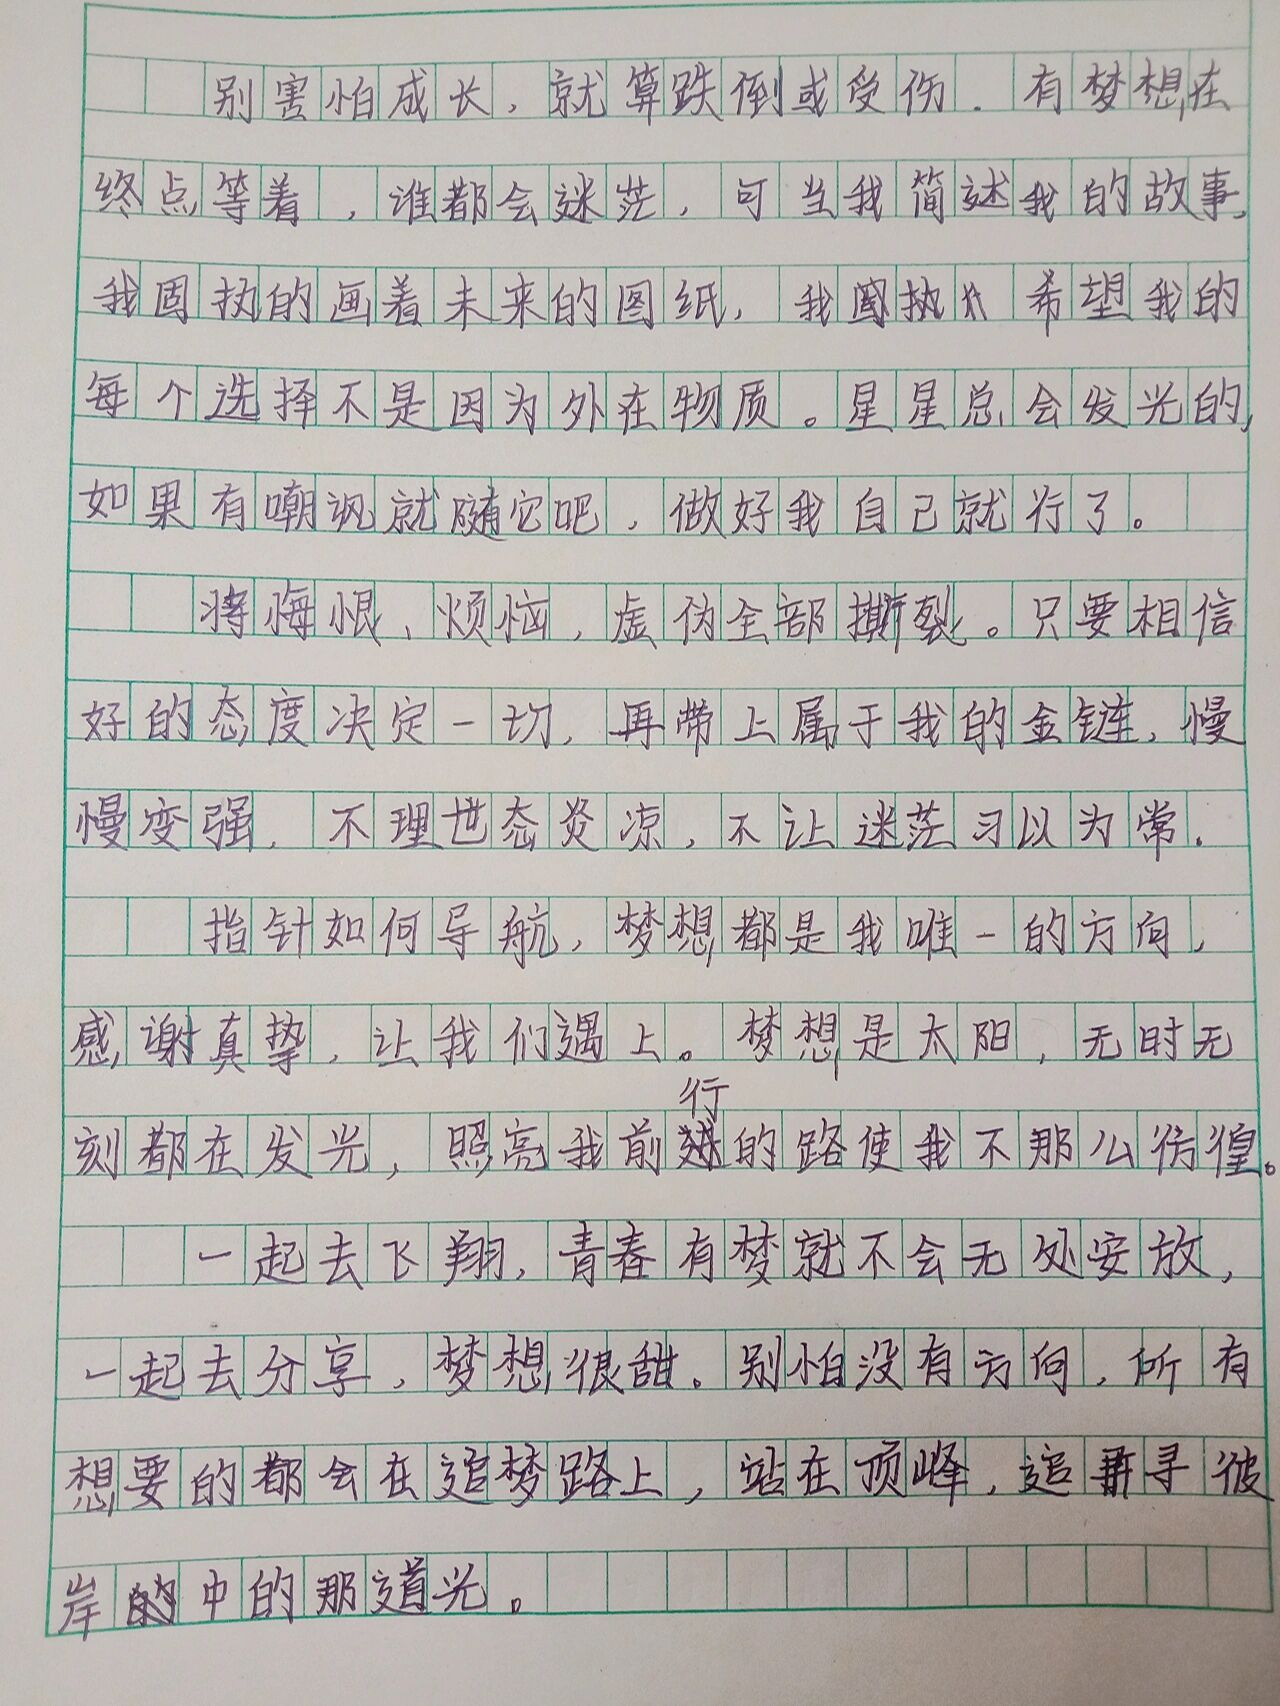 别害怕成长，就算跌倒或受伤．有梦想在
终点等着，谁都会迷茫，可当我简述我的故事，
我固执的画着未来的图纸，我希望我的
每个选择不是因为外在物质。星星总会发光的，
如果有嘲讽就随它吧，做好我自己就行了。
将悔恨、烦恼，虚伪全部撕裂。只要相信
好的态度决定一切，再带上属于我的金链，慢
慢变强，不理世态炎凉，不让迷茫习以为常．
指针如何导航，梦想都是我唯一的方向，
感谢真挚，让我们遇上。梦想是太阳，无时无
刻都在发光，照亮我前行的路使我不那么彷徨。
一起去飞翔，青春有梦就不会无处安放，
一起去分享，梦想很甜。别怕没有方向，所有
想要的都会在追梦路上，站在顶峰，追寻彼
岸中的那道光。